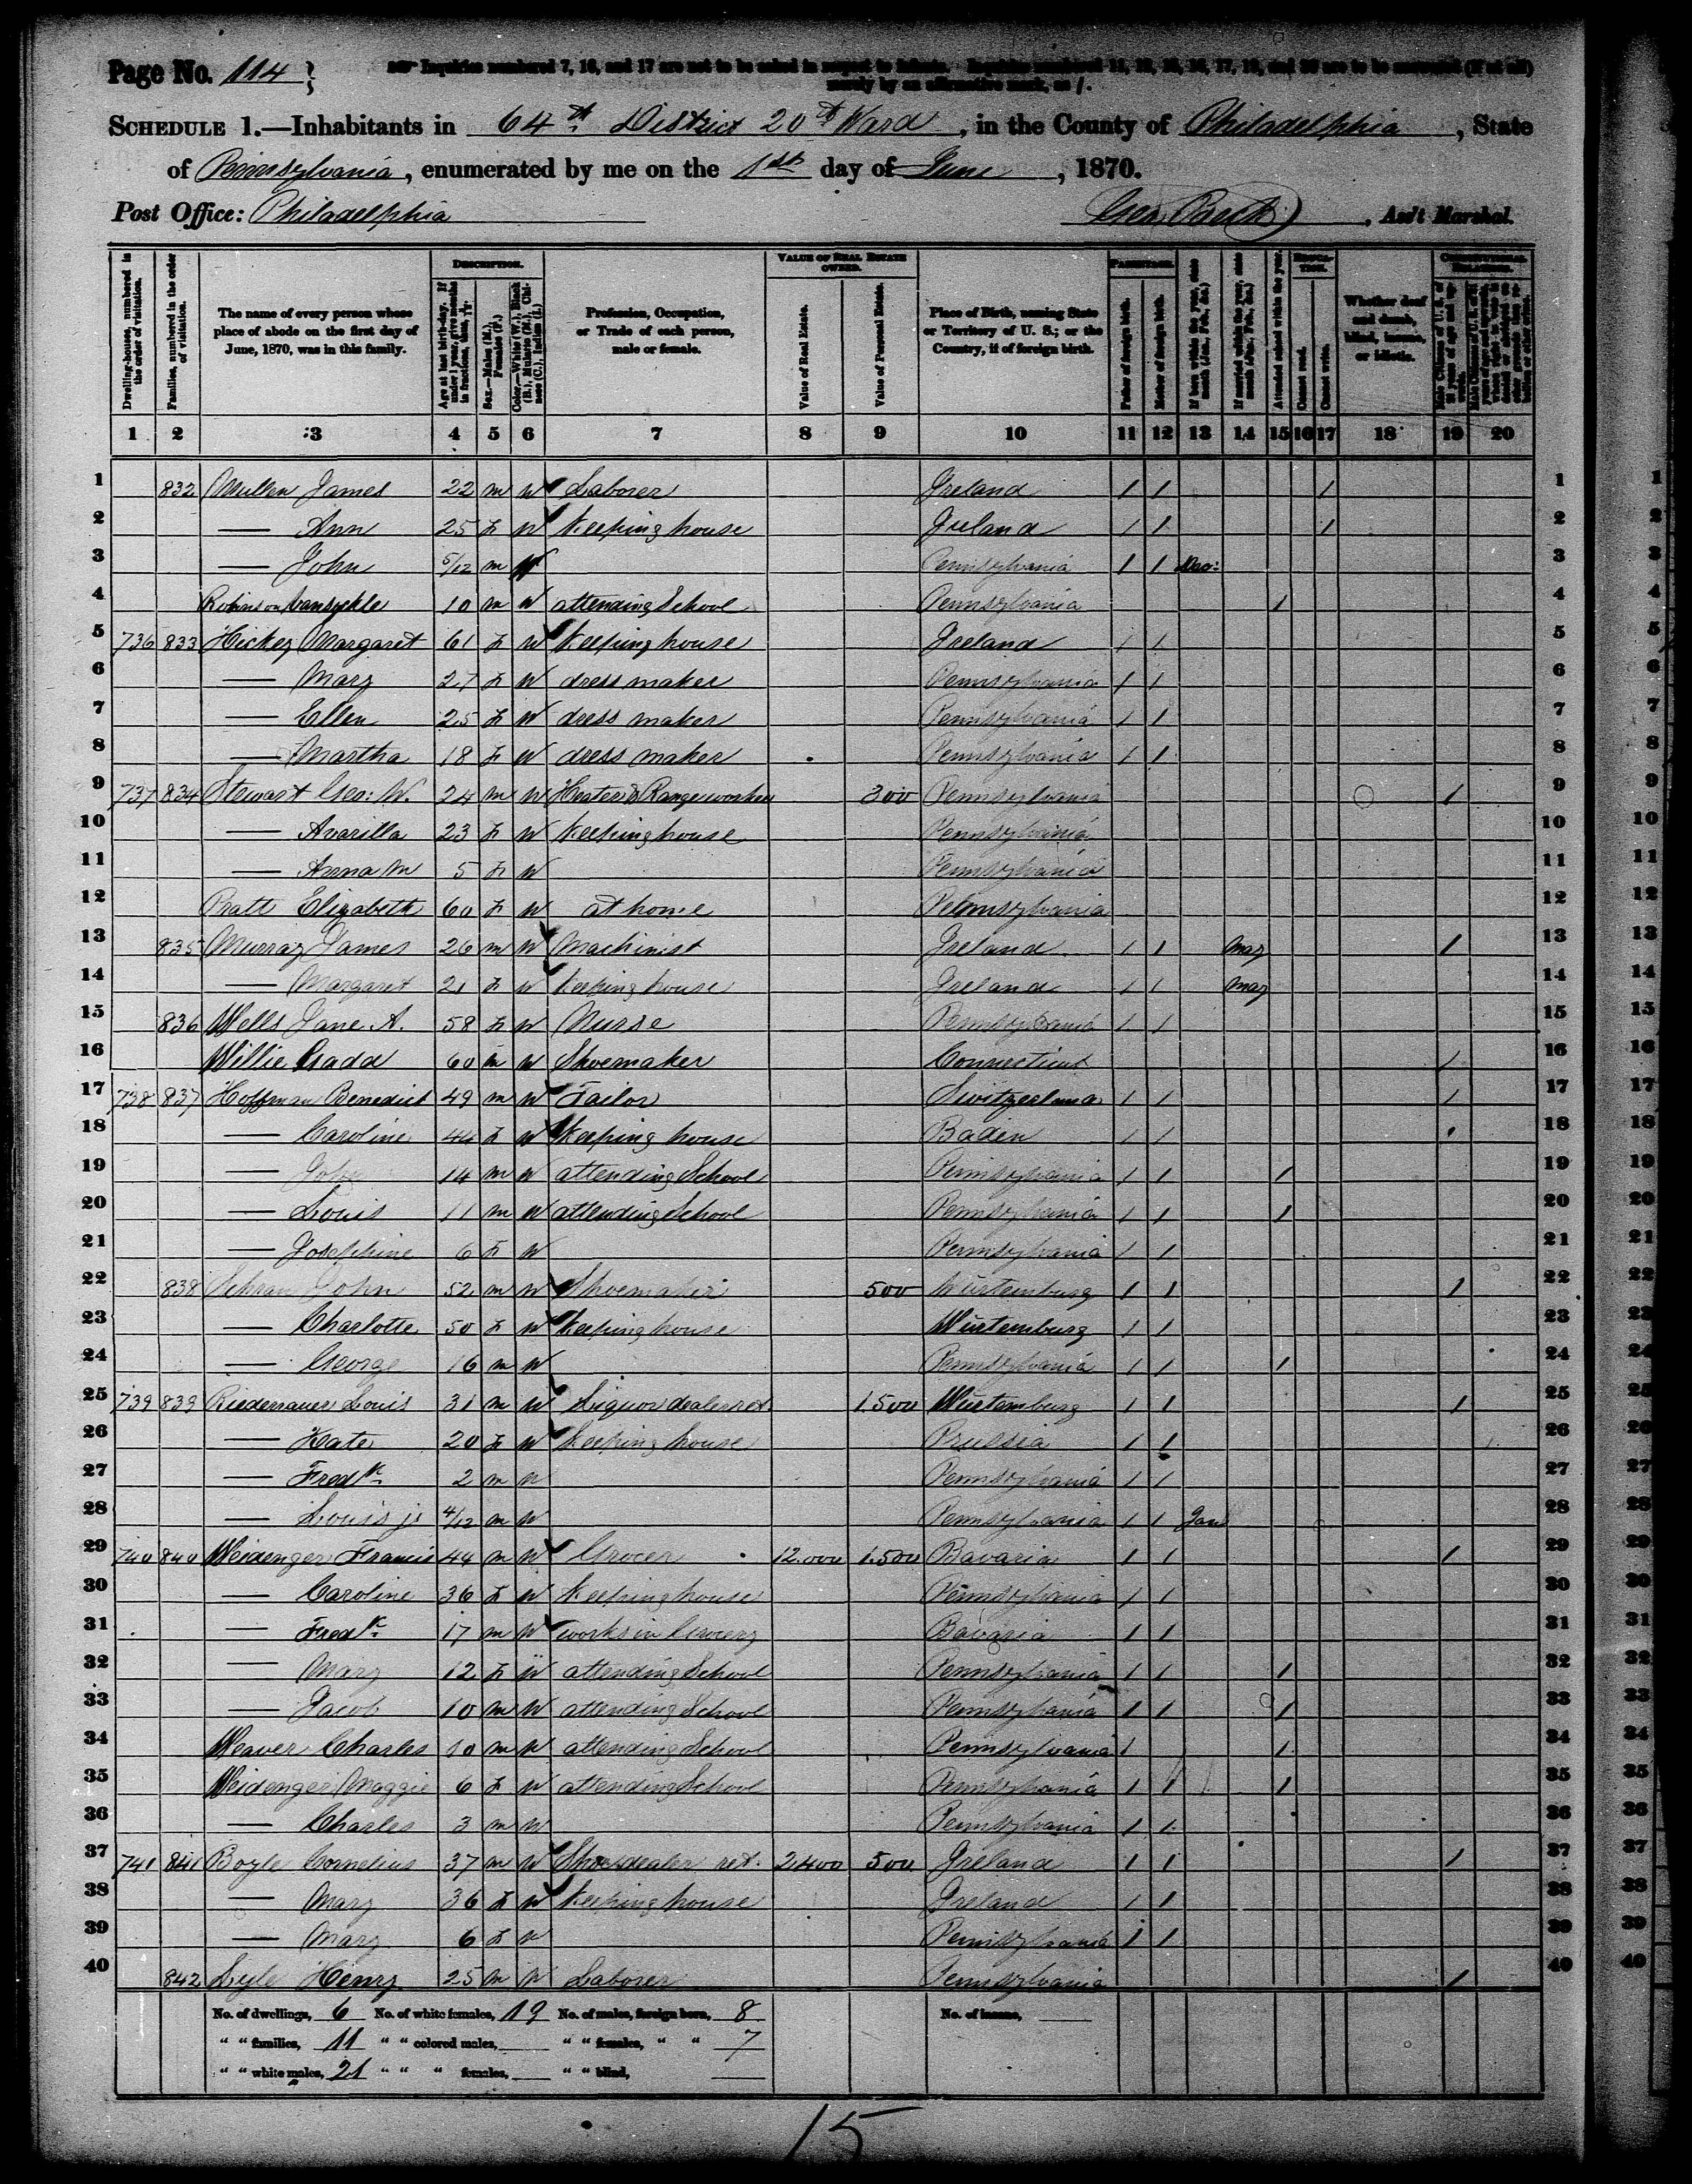 Page No. 114
Inquiries numbered 7, 16, and 17 are not to be asked in respect to infants. Inquiries numbered 11, 12, 15, 16, 17, 19, and 20 are to be answered (if at all)
merely by an affirmative mark, as /.
SCHEDULE 1.—Inhabitants in 64th District 20th Ward, in the County of Philadelphia, State
of Pennsylvania, enumerated by me on the 1st day of June, 1870.
Post Office: Philadelphia
Ass't Marshal.
Dwelling-houses, numbered in the order of visitation.
Families, numbered in the order of visitation.
The name of every person whose place of abode on the first day of June, 1870, was in this family.
DESCRIPTION.
Age at last birth-day. If under 1 year, give months in fractions, thus, 3/12.
Sex.—Males (M.), Females (F.)
Color.—White (W.), Black (B.), Mulatto (M.), Chinese (C.), Indian (I.)
Profession, Occupation, or Trade of each person, male or female.
VALUE OF REAL ESTATE OWNED.
Value of Real Estate.
Value of Personal Estate.
Place of Birth, naming State or Territory of U. S.; or the Country, if of foreign birth.
PARENTAGE.
Father of foreign birth.
Mother of foreign birth.
If born within the year, state month (Jan., Feb., &c.)
If married within the year, state month (Jan., Feb., &c.)
Attended school within the year.
EDUCATION.
Cannot read.
Cannot write.
Whether deaf and dumb, blind, insane, or idiotic.
CONSTITUTIONAL RELATIONS.
1 2 3 4 5 6 7 8 9 10 11 12 13 14 15 16 17 18 19 20
1 832 Mullen James 22 m W Laborer Ireland / / / 1
2 — Ann 25 F W Keeping house Ireland / / / 2
3 — John 5/12 m W Pennsylvania / / 3
4 Robinson Vansyckle 10 m W attending School Pennsylvania / 4
5 736 833 Hickey Margaret 61 F W Keeping house Ireland / / 5
6 — Mary 27 F W dress maker Pennsylvania / / 6
7 — Ellen 25 F W dress maker Pennsylvania / / 7
8 — Martha 18 F W dress maker Pennsylvania / / 8
9 737 834 Stewart Geo: W. 24 m W Heater & Range worker 300 Pennsylvania / 9
10 — Avarilla 23 F W Keeping house Pennsylvania 10
11 — Anna M 5 F W Pennsylvania 11
12 Pratt Elizabeth 60 F W at home Pennsylvania 12
13 835 Murray James 26 m W Machinist Ireland / / May / 13
14 — Margaret 21 F W Keeping house Ireland / / May 14
15 836 Wells Jane A. 58 F W Nurse Pennsylvania / / 15
16 Willie Gadd 60 m W Shoemaker Connecticut / 16
17 738 837 Hoffman Benedict 49 m W Tailor Switzerland / / / 17
18 — Caroline 44 F W Keeping house Baden / / 18
19 — John 14 m W attending School Pennsylvania / / / 19
20 — Louis 11 m W attending School Pennsylvania / / / 20
21 — Josephine 6 F W Pennsylvania / / 21
22 838 John 52 m W Shoemaker 500 Würtemburg / / / 22
23 — Charlotte 50 F W Keeping house Würtemburg / / 23
24 — George 16 m W Pennsylvania / / / 24
25 739 839 Riedenauer Louis 31 m W Liquor dealer ret. 1.500 Würtemburg / / / 25
26 — Kate 20 F W Keeping house Prussia / / 26
27 — Fredk 2 m W Pennsylvania / / 27
28 — Louis jr 4/12 m W Pennsylvania / / Jan 28
29 740 840 Weidenger Francis 44 m W Grocer 12.000 1.500 Bavaria / / / 29
30 — Caroline 36 F W Keeping house Pennsylvania / / 30
31 — Fredk 17 m W works in Grocery Bavaria / / 31
32 — Mary 12 F W attending School Pennsylvania / / / 32
33 — Jacob 10 m W attending School Pennsylvania / / / 33
34 Weaver Charles 10 m W attending School Pennsylvania / / 34
35 Weidenger Maggie 6 F W attending School Pennsylvania / / / 35
36 — Charles 3 m W Pennsylvania / / 36
37 741 841 Boyle Cornelius 37 m W Shoe dealer ret. 2.400 500 Ireland / / / 37
38 — Mary 36 F W Keeping house Ireland / / 38
39 — Mary 6 F W Pennsylvania / / 39
40 842 Lyle Henry 25 m W Laborer Pennsylvania / 40
No. of dwellings, 6 No. of white females, 19 No. of males, foreign born, 8 No. of insane,
" " families, 11 " " colored males, " " females, " " 7
" " white males, 21 " " " females, " " blind,
15